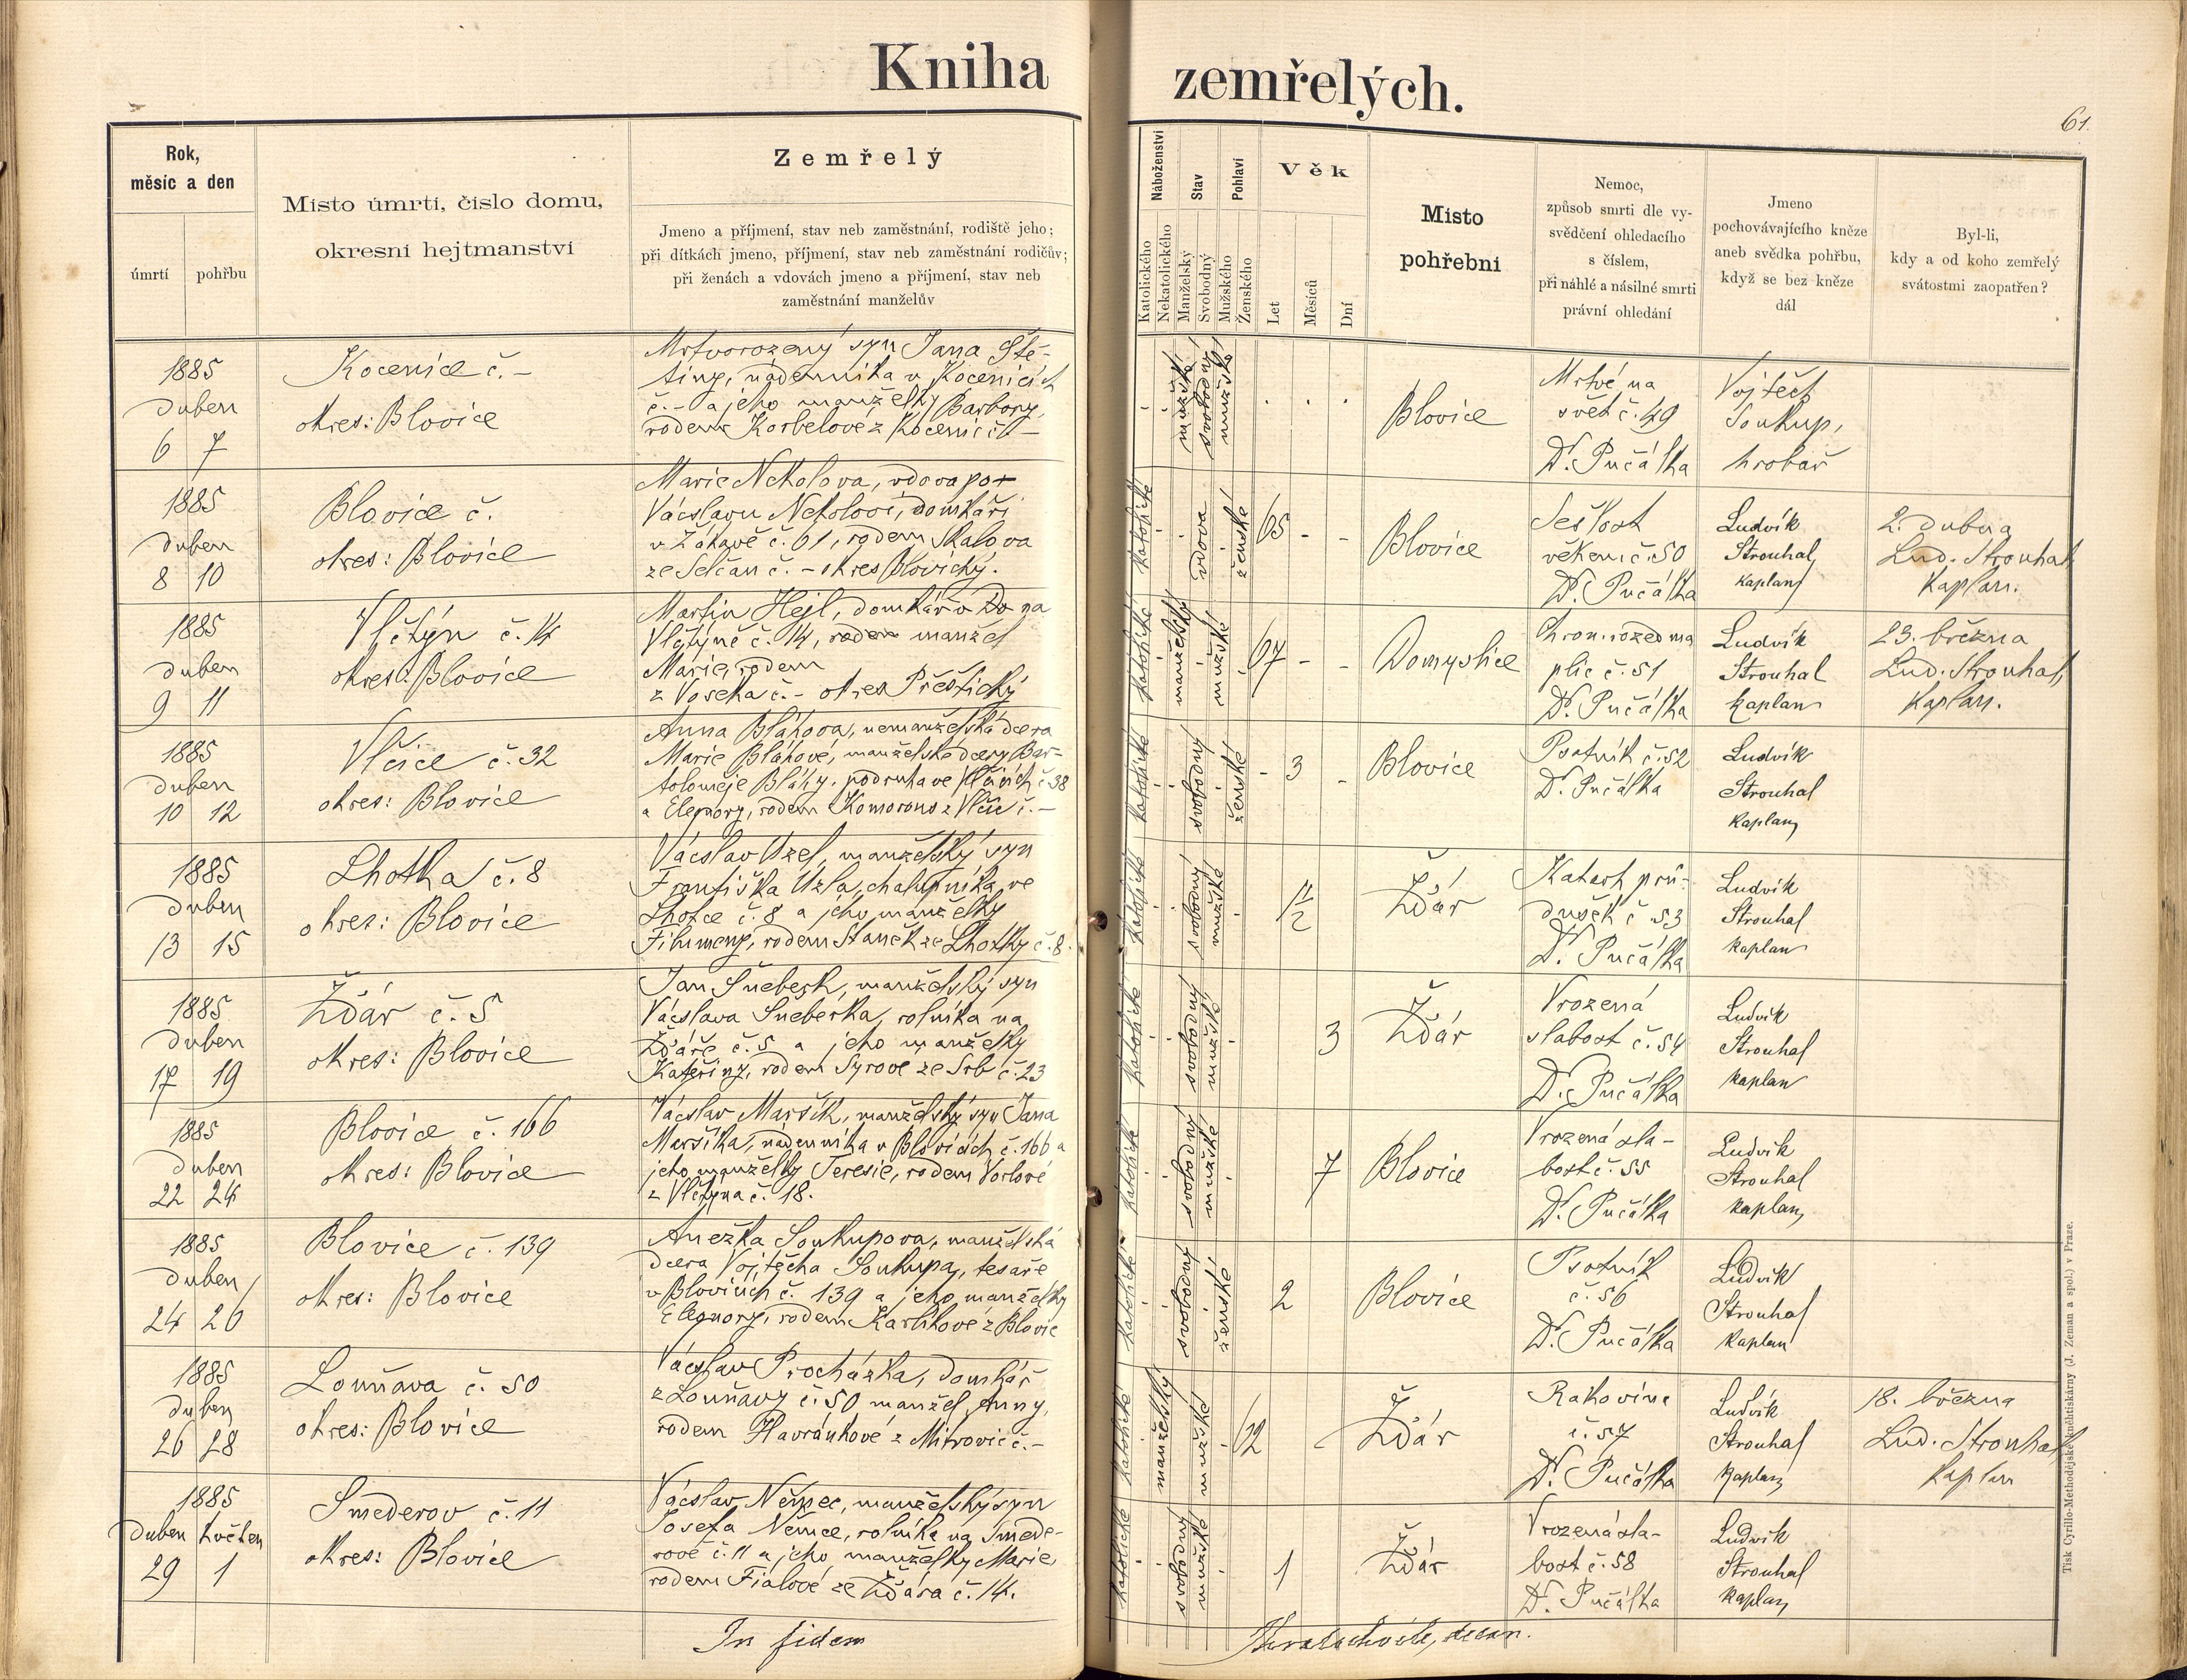 Kniha zemřelých.
61.
Rok,
měsíc a den
úmrtí
pohřbu
Místo úmrti, čislo domu,
okresni hejtmanství
Zemřelý
Jmeno a příjmení, stav neb zaměstnání, rodiště jeho;
při dítkách jmeno, příjmení, stav neb zaměstnání rodičův;
při ženách a vdovách jmeno a příjmení, stav neb
zaměstnání manželův
Náboženství
Katolického
Nekatolického
Stav
Manželský
Svobodný
Pohlaví
Mužského
Ženského
Věk
Let
Měsíců
Dní
Místo
pohřebni
Nemoc,
způsob smrti dle vy-
svědčení ohledacího
s číslem,
při náhlé a násilné smrti
právní ohledání
Jmeno
pochovávajícího kněze
aneb svědka pohřbu,
když se bez kněze
dál
Byl-li,
kdy a od koho zemřelý
svátostmi zaopatřen?
1885
duben
6 7
Kocenice č. -
okres: Blovice
Mrtvorozený syn Jana Ště-
tiny, nádenníka v Kocenicích
č. - a jeho manželky Barbory,
rodem Korbelové z Kocenic č. -
mužské
svobodný
mužské
Blovice
Mrtvé na
svět č. 49
Dr. Pučálka
Vojtěch
Soukup,
hrobař
1885
duben
8 10
Blovice č.
okres: Blovice
Marie Nekolova, vdova po
Václavu Nekolovi, domkáři
v Žákavě č. 61, rodem Skalova
ze Selčan č. - okres Blovický.
katolické
vdova
ženské
65 - -
Blovice
Sešlost
věkem č. 50
Dr. Pučálka
Ludvík
Strouhal,
kaplan
2. dubna
Lud. Strouhal,
kaplan.
1885
duben
9 11
Vlčtýn č. 14
okres: Blovice
Martin Hejl, domkář
Vlčtýně č. 14, manžel
Marie, rodem
z Voseka č. - okres Přeštický
katolické
manželský
mužské
67 - -
Domyslice
Chron. rozedma
plic č. 51
Dr. Pučálka
Ludvík
Strouhal
kaplan
23. března
Lud. Strouhal,
kaplan.
1885
duben
10 12
Vlčice č. 32
okres: Blovice
Anna Bláhova, nemanželská dcera
Marie Bláhové, manželské dcery Bar-
toloměje Bláhy, podruha ve Vlčicích č. 38
a Eleonory, rodem Komorous z Vlčic č. -
katolické
svobodný
ženské
- 3 -
Blovice
Psotník č. 52
Dr. Pučálka
Ludvík
Strouhal
kaplan
1885
duben
13 15
Lhotka č. 8
okres: Blovice
Václav Uzel, manželský syn
Františka Uzla, chalupníka ve
Lhotce č. 8 a jeho manželky
Filumeny, rodem Staněk ze Lhotky č. 8.
katolické
svobodný
mužské
1/2
Žďár
Katarh prů-
dušek č 53
Dr. Pučálka
Ludvík
Strouhal
kaplan
1885
duben
17 19
Žďár č. 5
okres: Blovice
Jan Šneberk, manželský syn
Václava Šneberka, rolníka na
Žďáře č. 5 a jeho manželky
Kateřiny, rodem Syrove ze Srb č. 23
katolické
svobodný
mužské
3
Žďár
Vrozená
slabost č. 54
Dr. Pučálka
Ludvík
Strouhal
kaplan
1885
duben
22 24
Blovice č. 166
okres: Blovice
Václav Maršík, manželský syn Jana
Maršíka, nádenníka v Blovicích č. 166 a
jeho manželky Teresie, rodem Vorlové
z Vlčtýna č. 18.
katolické
svobodný
mužské
7
Blovice
Vrozená sla-
bost č. 55
Dr. Pučálka
Ludvík
Strouhal
kaplan
1885
duben
24 26
Blovice č. 139
okres: Blovice
Anežka Soukupova, manželská
dcera Vojtěcha Soukupa, tesaře
v Blovicích č. 139 a jeho manželky
Eleonory, rodem Karlíkové z Blovic
katolické
svobodný
ženské
2
Blovice
Psotník
č. 56
Dr. Pučálka
Ludvík
Strouhal
kaplan
1885
duben
26 28
Louňava č. 50
okres: Blovice
Václav Procházka, domkář
z Louňavy č. 50 manžel Anny,
rodem Havránkové z Mitrovic č. -
katolické
manželský
mužské
62
Žďár
Rakovina
č. 57
Dr. Pučálka
Ludvík
Strouhal
kaplan
18. března
Lud. Strouhal,
kaplan
1885
duben květen
29 1
Smederov č. 11
okres: Blovice
Václav Němec, manželský syn
Josefa Němce, rolníka na Smede-
rově č. 11 a jeho manželky Marie,
rodem Fialové ze Žďára č. 14.
katolické
svobodný
mužské
1
Žďár
Vrozená sla-
bost č. 58
Dr. Pučálka
Ludvík
Strouhal
kaplan
In fidem
Tisk Cyrillo-Methodějské knihtiskárny (J. Zeman a spol.) v Praze.